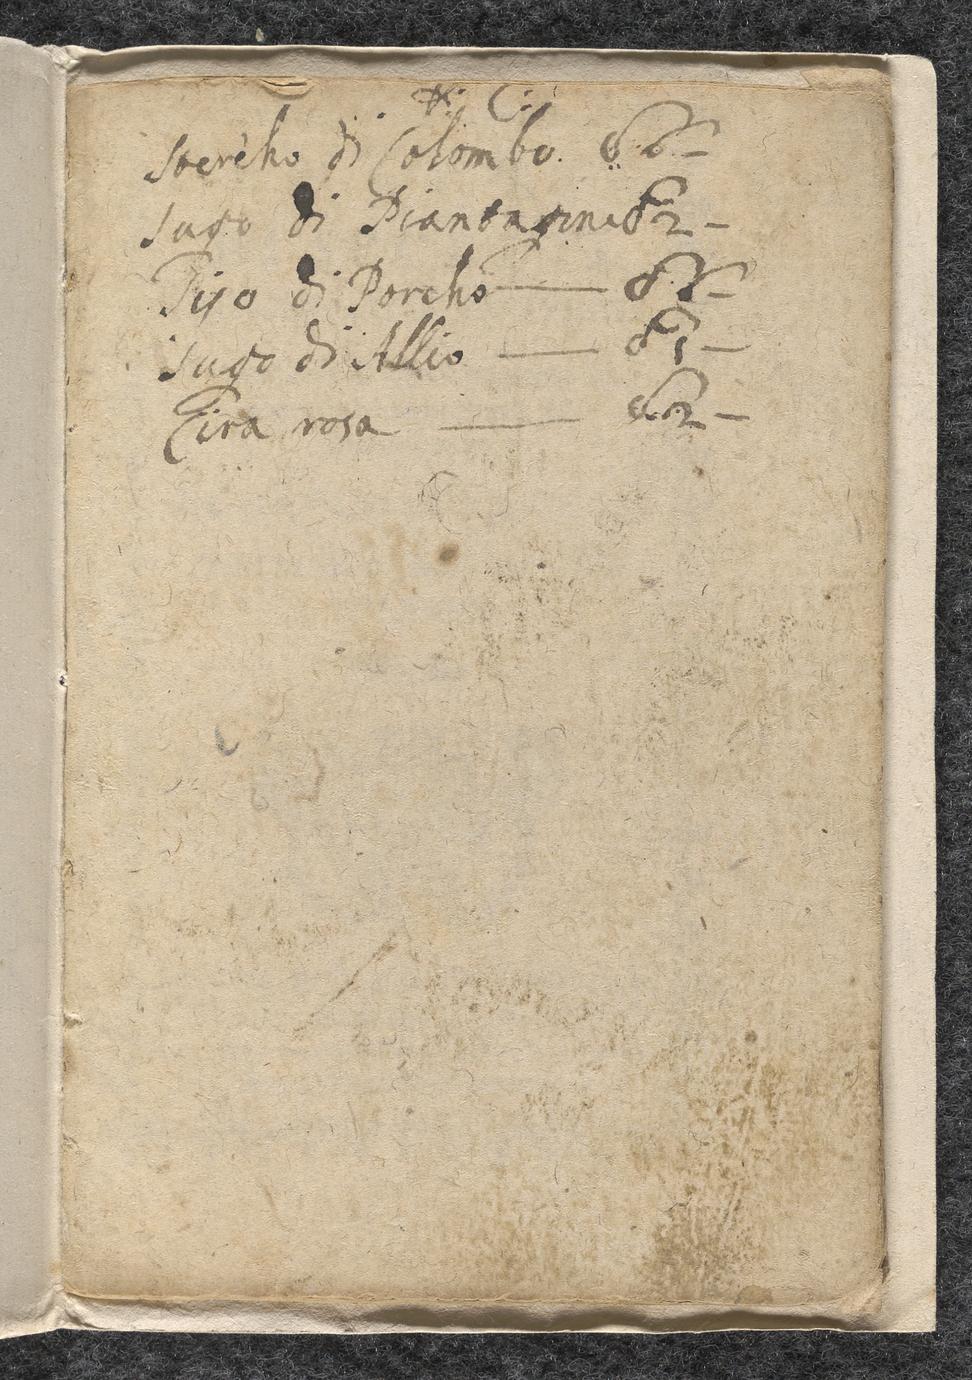 Stercho di Colombo.
Sugo di Piantagine 2 –
Piso di Porcho —
Sugo di Allio — 1 –
Cira rosa — 2 –